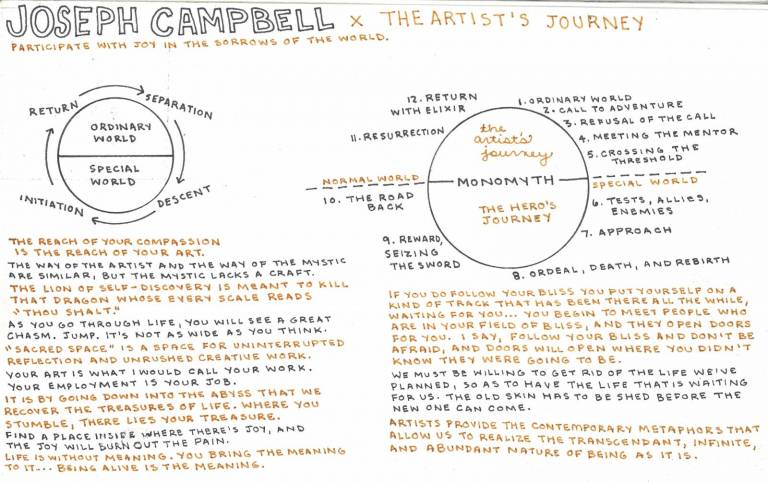 JOSEPH CAMPBELL x THE ARTIST'S JOURNEY
PARTICIPATE WITH JOY IN THE SORROWS OF THE WORLD.
RETURN
SEPARATION
ORDINARY
WORLD
SPECIAL
WORLD
INITIATION
DESCENT
12. RETURN
WITH ELIXIR
1. ORDINARY WORLD
2. CALL TO ADVENTURE
3. REFUSAL OF THE CALL
4. MEETING THE MENTOR
5. CROSSING THE
THRESHOLD
11. RESURRECTION
the
artist's
journey
NORMAL WORLD
MONOMYTH
SPECIAL WORLD
10. THE ROAD
BACK
THE HERO'S
JOURNEY
6. TESTS, ALLIES,
ENEMIES
7. APPROACH
9. REWARD,
SEIZING
THE SWORD
8. ORDEAL, DEATH, AND REBIRTH
THE REACH OF YOUR COMPASSION
IS THE REACH OF YOUR ART.
THE WAY OF THE ARTIST AND THE WAY OF THE MYSTIC
ARE SIMILAR, BUT THE MYSTIC LACKS A CRAFT.
THE LION OF SELF-DISCOVERY IS MEANT TO KILL
THAT DRAGON WHOSE EVERY SCALE READS
"THOU SHALT."
AS YOU GO THROUGH LIFE, YOU WILL SEE A GREAT
CHASM. JUMP. IT'S NOT AS WIDE AS YOU THINK.
"SACRED SPACE" IS A SPACE FOR UNINTERRUPTED
REFLECTION AND UNRUSHED CREATIVE WORK.
YOUR ART IS WHAT I WOULD CALL YOUR WORK.
YOUR EMPLOYMENT IS YOUR JOB.
IT IS BY GOING DOWN INTO THE ABYSS THAT WE
RECOVER THE TREASURES OF LIFE. WHERE YOU
STUMBLE, THERE LIES YOUR TREASURE.
FIND A PLACE INSIDE WHERE THERE'S JOY, AND
THE JOY WILL BURN OUT THE PAIN.
LIFE IS WITHOUT MEANING. YOU BRING THE MEANING
TO IT... BEING ALIVE IS THE MEANING.
IF YOU DO FOLLOW YOUR BLISS YOU PUT YOURSELF ON A
KIND OF TRACK THAT HAS BEEN THERE ALL THE WHILE,
WAITING FOR YOU... YOU BEGIN TO MEET PEOPLE WHO
ARE IN YOUR FIELD OF BLISS, AND THEY OPEN DOORS
FOR YOU. I SAY, FOLLOW YOUR BLISS AND DON'T BE
AFRAID, AND DOORS WILL OPEN WHERE YOU DIDN'T
KNOW THEY WERE GOING TO BE.
WE MUST BE WILLING TO GET RID OF THE LIFE WE'VE
PLANNED, SO AS TO HAVE THE LIFE THAT IS WAITING
FOR US. THE OLD SKIN HAS TO BE SHED BEFORE THE
NEW ONE CAN COME.
ARTISTS PROVIDE THE CONTEMPORARY METAPHORS THAT
ALLOW US TO REALIZE THE TRANSCENDANT, INFINITE,
AND ABUNDANT NATURE OF BEING AS IT IS.